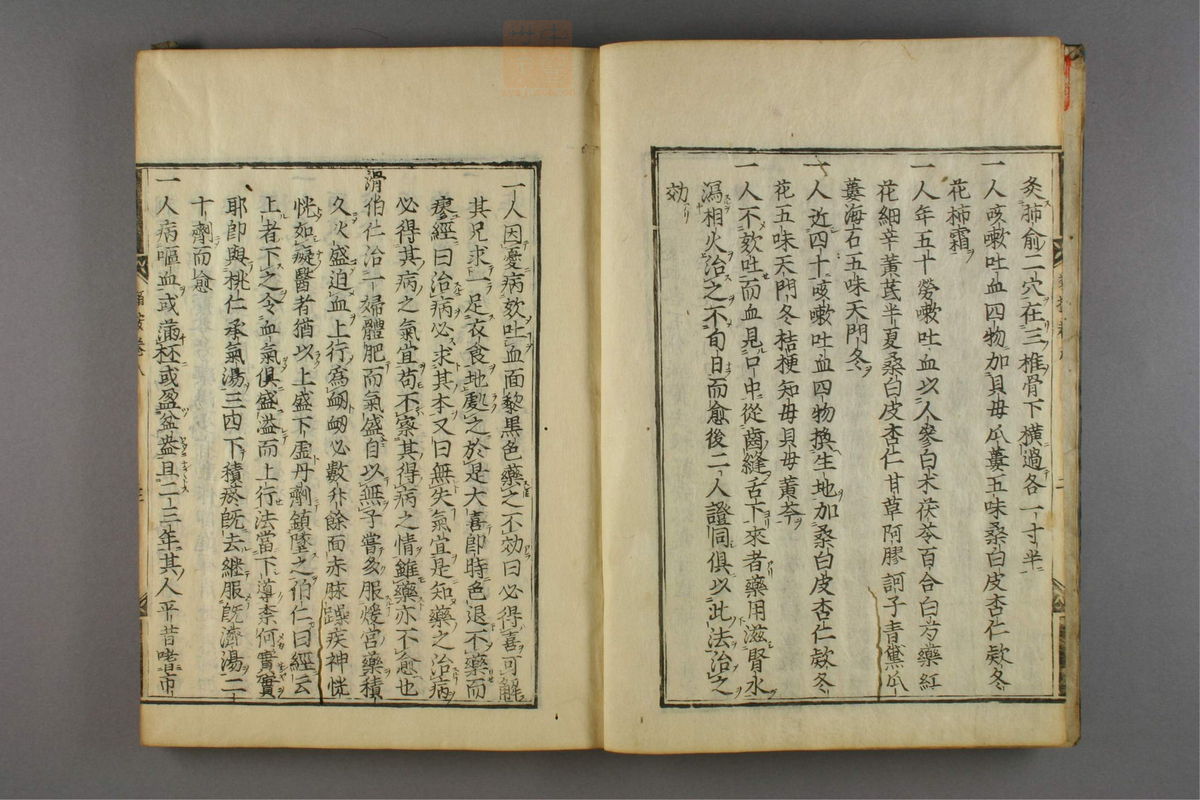 灸肺俞二穴在三椎骨下橫過各一寸半
一人咳嗽吐血四物加貝母瓜蔞五味桑白皮杏仁欵冬
花柿霜
一人年五十勞嗽吐血以人參白朮茯苓百合白芍藥紅
花細辛黃芪半夏桑白皮杏仁甘草阿膠訶子青黛瓜
蔞海石五味天門冬
一人近四十咳嗽吐血四物換生地加桑白皮杏仁欵冬
花五味天門冬桔梗知母貝母黃芩
一人不欬吐而血見口中從齒縫舌下來者藥用滋腎水
瀉相火治之不旬日而愈後二人證同俱以此法治之
効
一人因憂病欬吐血面黎黑色藥之不効曰必得喜可解
其兄求一足衣食地處之於是大喜卽時色退不藥而
瘳經曰治病必求其本又曰無失氣宜是知藥之治病
必得其病之氣宜苟不察其得病之情雖藥亦不愈也
滑伯仁治一婦體肥而氣盛自以無子嘗多服煖宮藥積
久火盛迫血上行爲衂衂必數升餘面赤脉躁疾神恍
恍如癡醫者猶以上盛下虛丹劑鎮墜之伯仁曰經云
上者下之今血氣俱盛溢而上行法當下導柰何實實
耶卽與桃仁承氣湯三四下積瘀既去継服既濟湯二
十劑而愈
一人病嘔血或滿杯或盈盆盎且二三年其人平昔嗜市